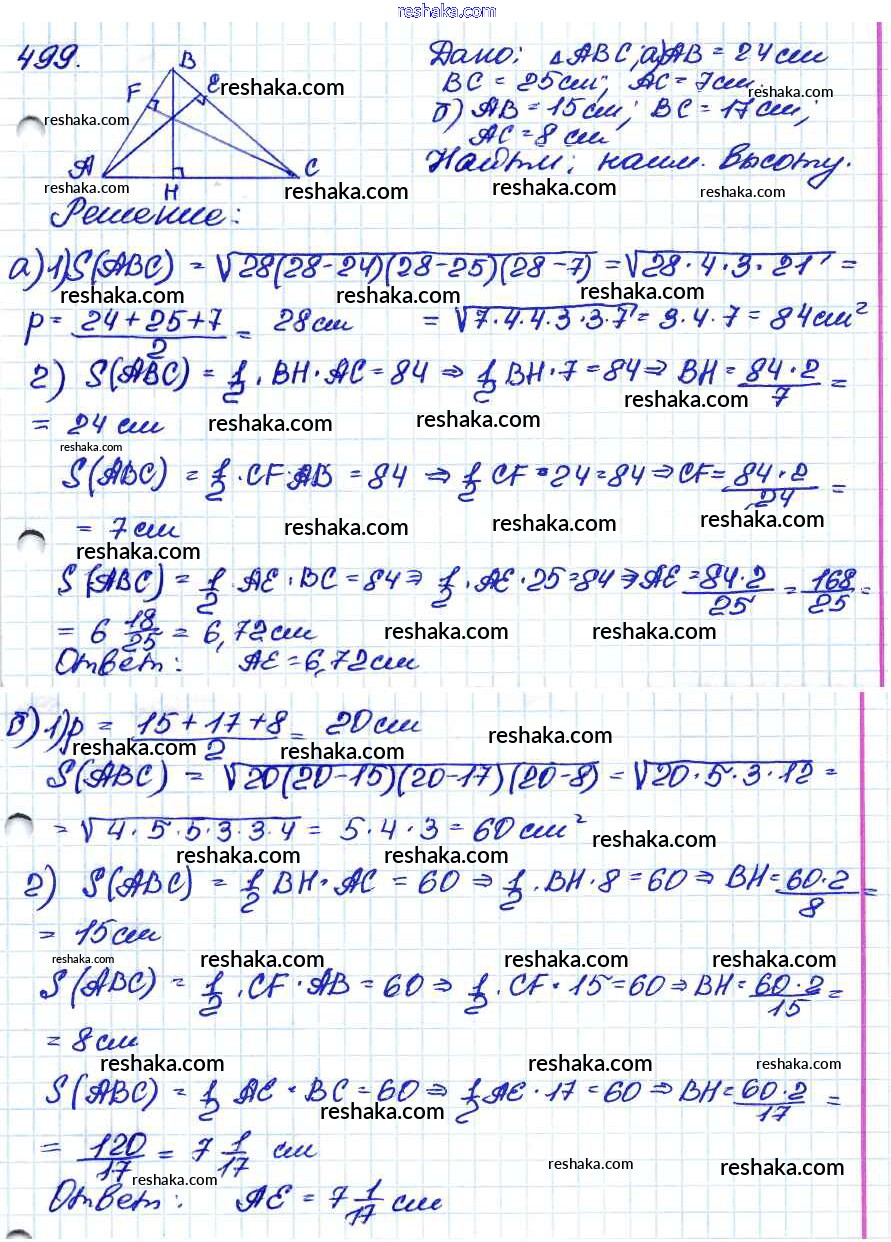 reshaka.com
499.
B
F
E
A
H
C
Дано: ΔABC, а) AB = 24 см
BC = 25 см; AC = 7 см.
б) AB = 15 см; BC = 17 см;
AC = 8 см
Найти: наим. высоту.
reshaka.com
reshaka.com
reshaka.com
reshaka.com
reshaka.com
reshaka.com
reshaka.com
Решение:
а) 1) S(ABC) = √28(28-24)(28-25)(28-7) = √28·4·3·21 =
reshaka.com reshaka.com reshaka.com
p = (24+25+7)/2 = 28 см = √7·4·4·3·3·7 = 3·4·7 = 84 см²
2) S(ABC) = 1/2 · BH · AC = 84 ⇒ 1/2 BH · 7 = 84 ⇒ BH = 84·2/7 =
reshaka.com
= 24 см reshaka.com reshaka.com
reshaka.com
S(ABC) = 1/2 · CF · AB = 84 ⇒ 1/2 CF · 24 = 84 ⇒ CF = 84·2/24 =
= 7 см reshaka.com reshaka.com reshaka.com
reshaka.com
S(ABC) = 1/2 AE · BC = 84 ⇒ 1/2 · AE · 25 = 84 ⇒ AE = 84·2/25 = 168/25 =
= 6 18/25 = 6,72 см reshaka.com reshaka.com
Ответ: AE = 6,72 см
б) 1) p = (15+17+8)/2 = 20 см reshaka.com
reshaka.com reshaka.com
S(ABC) = √20(20-15)(20-17)(20-8) = √20·5·3·12 =
= √4·5·5·3·3·4 = 5·4·3 = 60 см² reshaka.com
reshaka.com reshaka.com
2) S(ABC) = 1/2 BH · AC = 60 ⇒ 1/2 · BH · 8 = 60 ⇒ BH = 60·2/8 =
= 15 см
reshaka.com reshaka.com reshaka.com reshaka.com
S(ABC) = 1/2 · CF · AB = 60 ⇒ 1/2 · CF · 15 = 60 ⇒ BH = 60·2/15 =
= 8 см
reshaka.com reshaka.com reshaka.com
S(ABC) = 1/2 AE · BC = 60 ⇒ 1/2 AE · 17 = 60 ⇒ BH = 60·2/17 =
reshaka.com
= 120/17 = 7 1/17 см reshaka.com reshaka.com
reshaka.com
Ответ: AE = 7 1/17 см